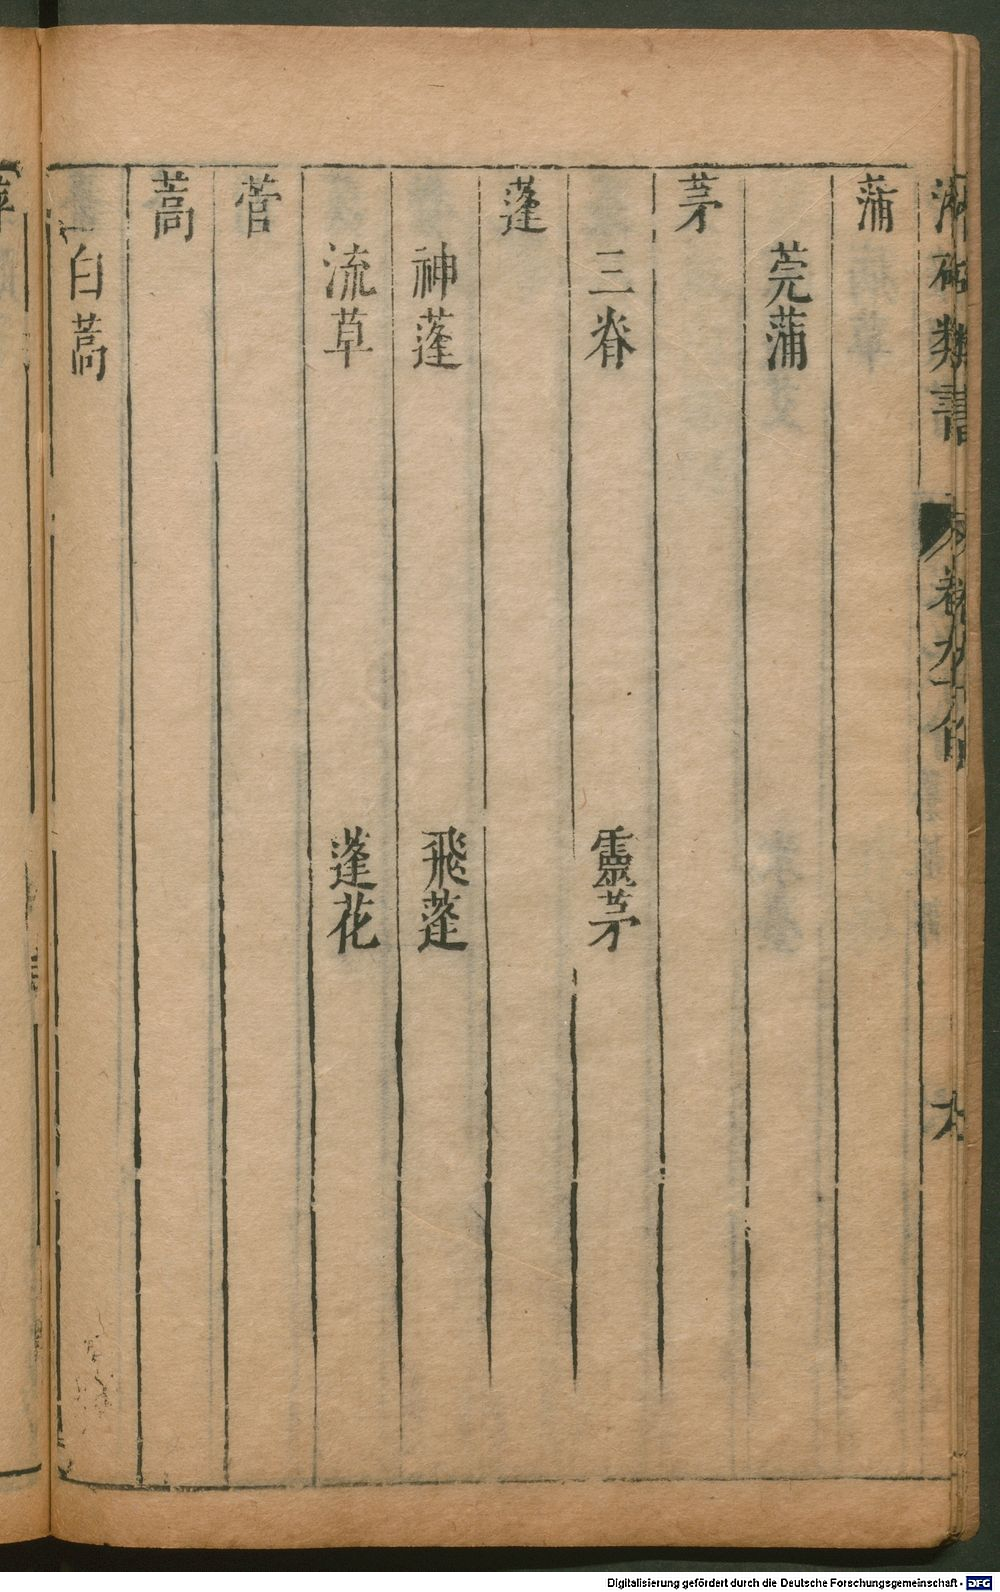 類書
蒲
莞蒲
茅
三脊 靈茅
蓬
神蓬 飛蓬
流草 蓬花
菅
蒿
白蒿
Digitalisierung gefördert durch die Deutsche Forschungsgemeinschaft - DFG